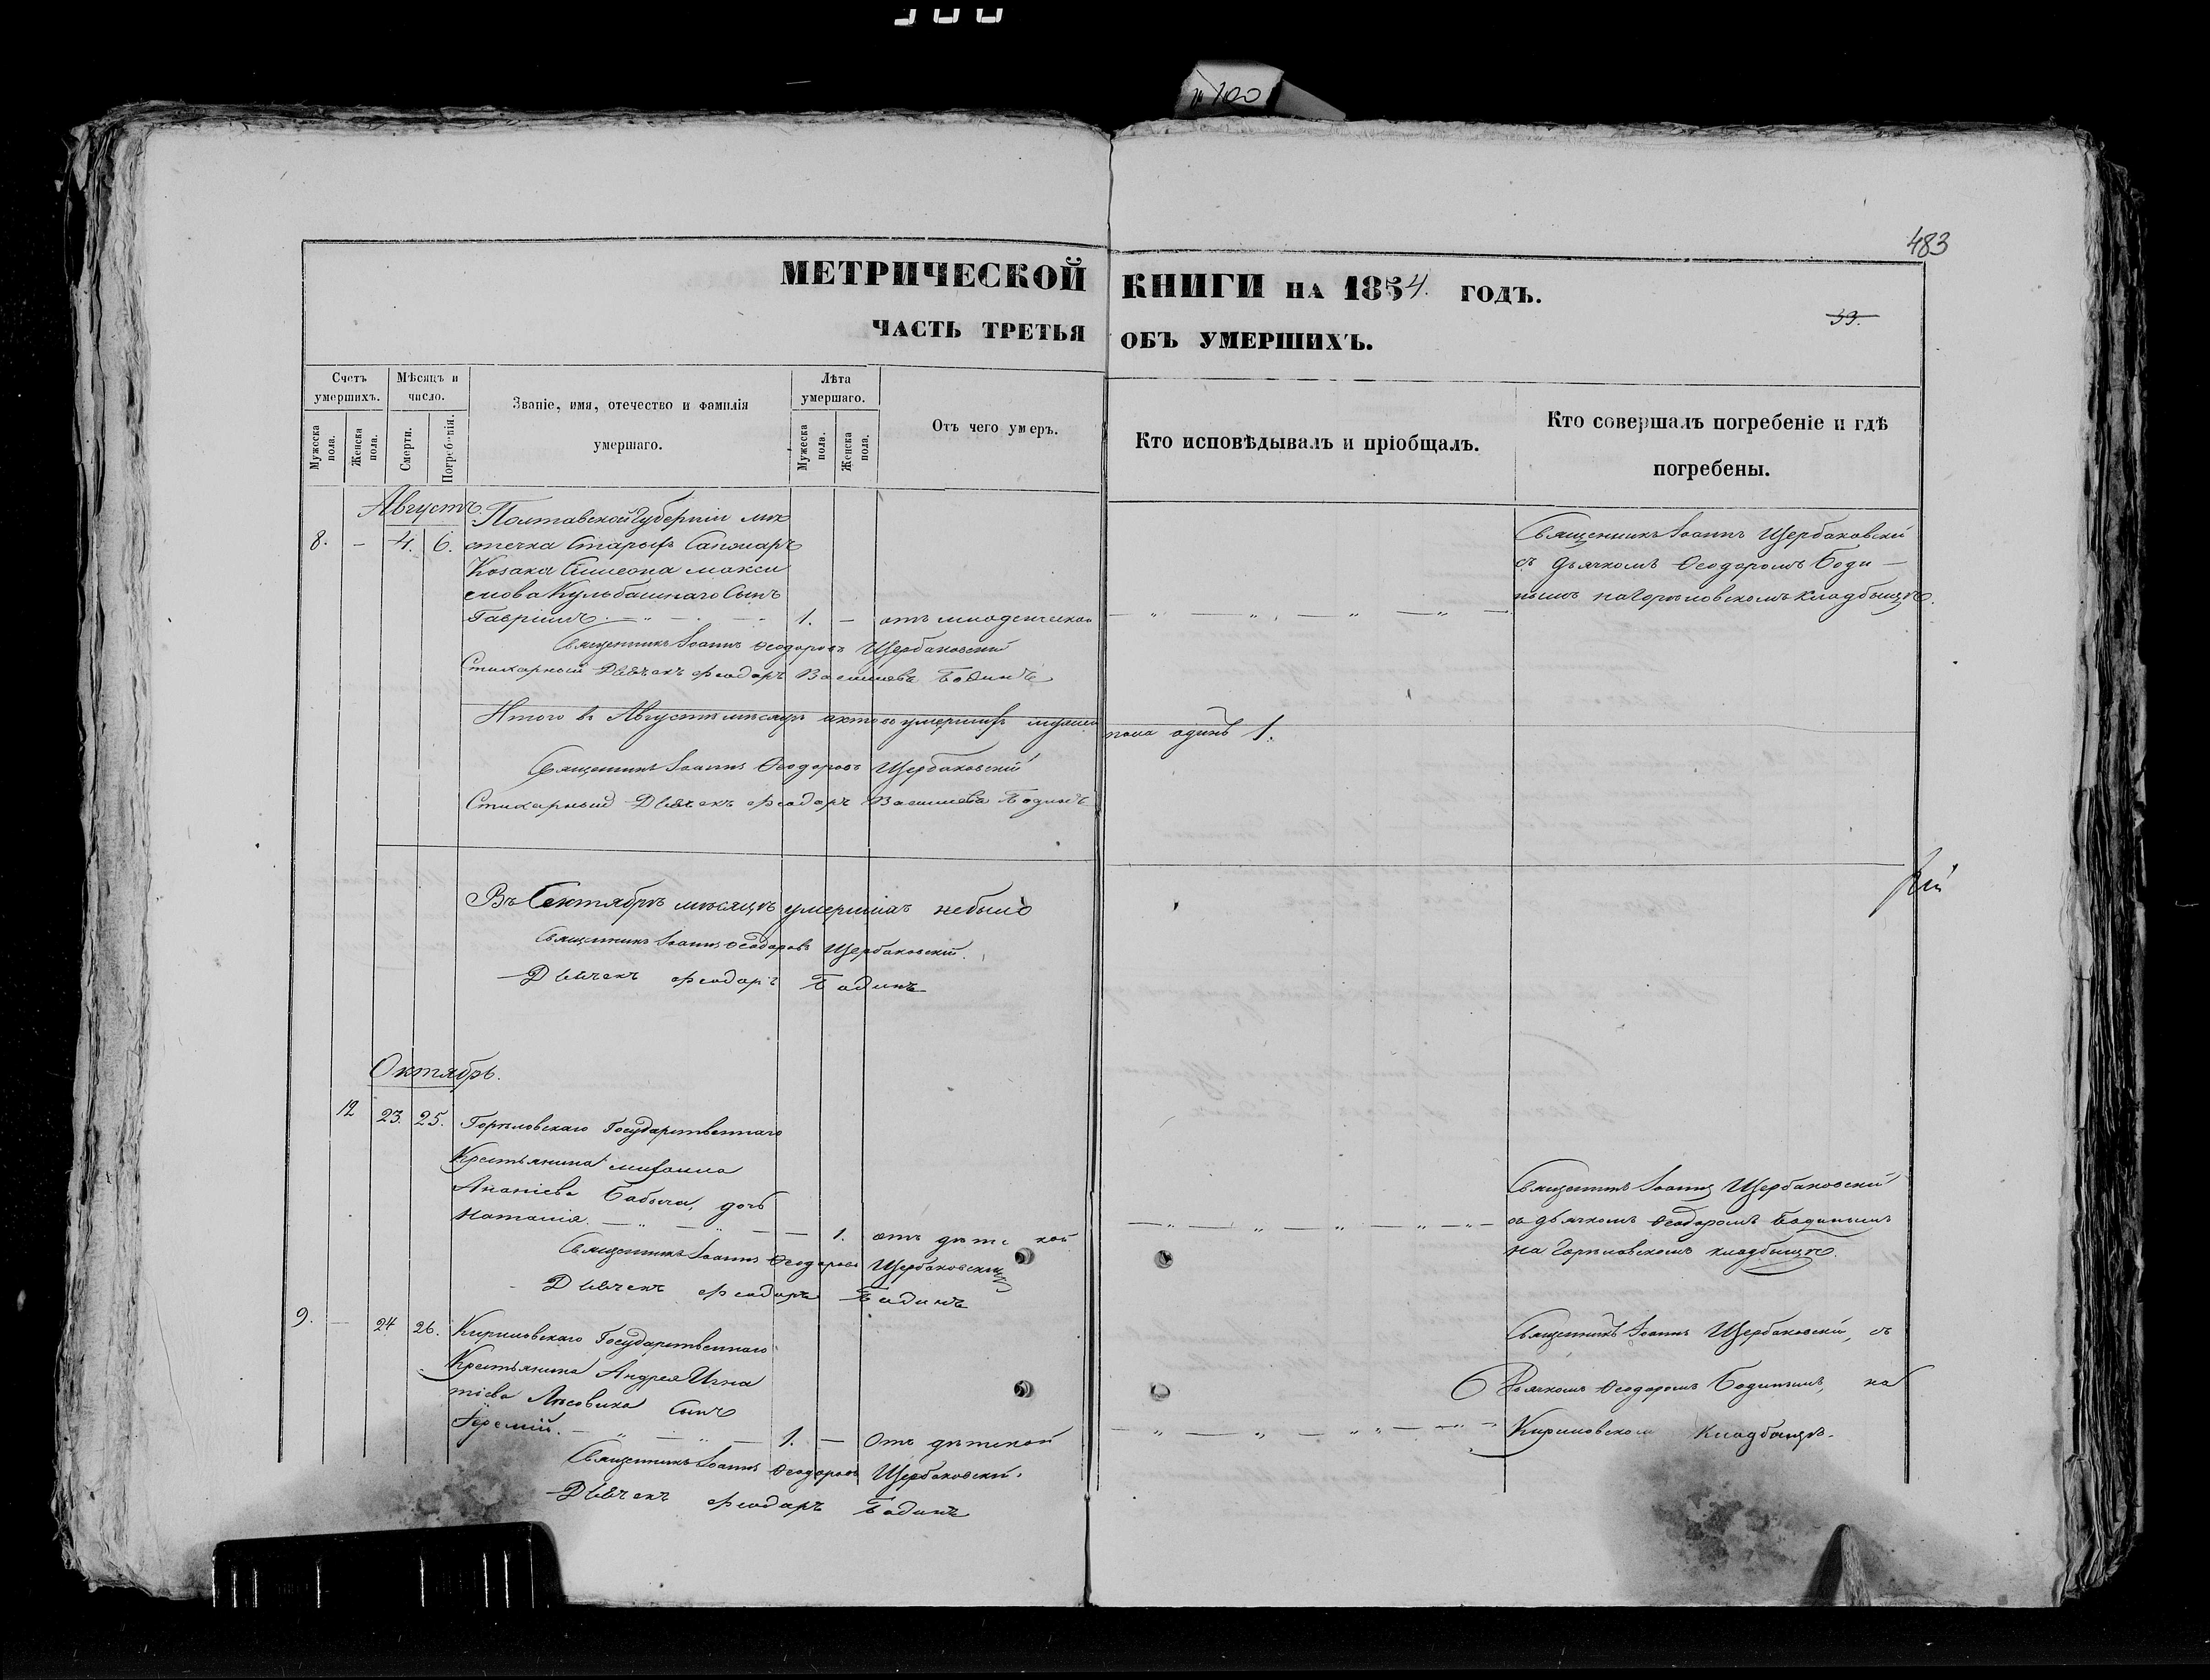 № 100
483
МЕТРИЧЕСКОЙ КНИГИ НА 1854. ГОДЪ.
ЧАСТЬ ТРЕТЬЯ ОБЪ УМЕРШИХЪ.
39.
Счетъ умершихъ.
Мужеска пола.
Женска пола.
Мѣсяцъ и число.
Смерти.
Погребенія.
Званіе, имя, отечество и фамилія умершаго.
Лѣта умершаго.
Мужеска пола.
Женска пола.
Отъ чего умеръ.
Кто исповѣдывалъ и пріобщалъ.
Кто совершалъ погребеніе и гдѣ погребены.
Августъ.
Полтавской Губерніи мѣ
8. — 4. 6. стечка Старыхъ Санжаръ
Козака Симеона Макси
мова Кульбашнаго Сынъ
Гавріилъ. — 1. — отъ младенческой
Священникъ Іоаннъ Щербаковскій
съ дьячкомъ Ѳеодоромъ Боди—
нымъ на Горѣловскомъ кладбищѣ.
Священникъ Іоаннъ Ѳеодоровъ Щербаковскій
Стихарный Дьячекъ Феодоръ Васильевъ Бодинъ
Итого въ Августѣ мѣсяцѣ умершихъ мужеска пола одинъ 1.
Священникъ Іоаннъ Ѳеодоровъ Щербаковскій
Стихарный Дьячекъ Феодоръ Васильевъ Бодинъ
Въ Сентябрѣ мѣсяцѣ умершихъ небыло
Священникъ Іоаннъ Ѳеодоровъ Щербаковскій.
Дьячекъ Феодоръ Бодинъ
Октябрь.
12 23. 25. Горѣловскаго Государственнаго
Крестьянина Михаила
Ананіева Бабыча, дочь
Наталія. — 1. отъ дѣтской
Священникъ Іоаннъ Щербаковскій
съ дьячкомъ Ѳеодоромъ Бодинымъ
на Горѣловскомъ кладбищѣ.
Священникъ Іоаннъ Ѳеодоровъ Щербаковскій
Дьячекъ Феодоръ Бодинъ
9. — 24 26. Кириловскаго Государственнаго
Крестьянина Андрея Игна
тіева Лѣсовика Сынъ
Іеремій. — 1. — Отъ дѣтской
Священникъ Іоаннъ Щербаковскій, съ
Дьячкомъ Ѳеодоромъ Бодинымъ, на
Кириловскомъ Кладбищѣ.
Священникъ Іоаннъ Ѳеодоровъ Щербаковскій.
Дьячекъ Феодоръ Бодинъ